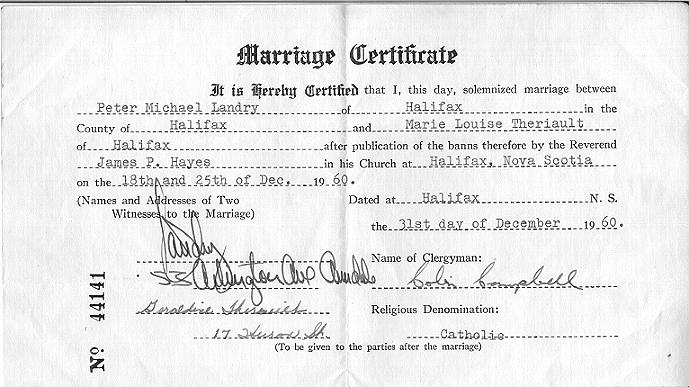 Marriage Certificate
It is Hereby Certified that I, this day, solemnized marriage between
Peter Michael Landry of Halifax in the
County of Halifax and Marie Louise Theriault
of Halifax after publication of the banns therefore by the Reverend
James P. Hayes in his Church at Halifax, Nova Scotia
on the 18th and 25th of Dec. 1960.
(Names and Addresses of Two
Witnesses to the Marriage)
Dated at Halifax N. S.
the 31st day of December 1960.
Landry
53 Ave Armdale
Geraldine
17 St.
Name of Clergyman:
Colin Campbell
Religious Denomination:
Catholic
(To be given to the parties after the marriage)
No 44141